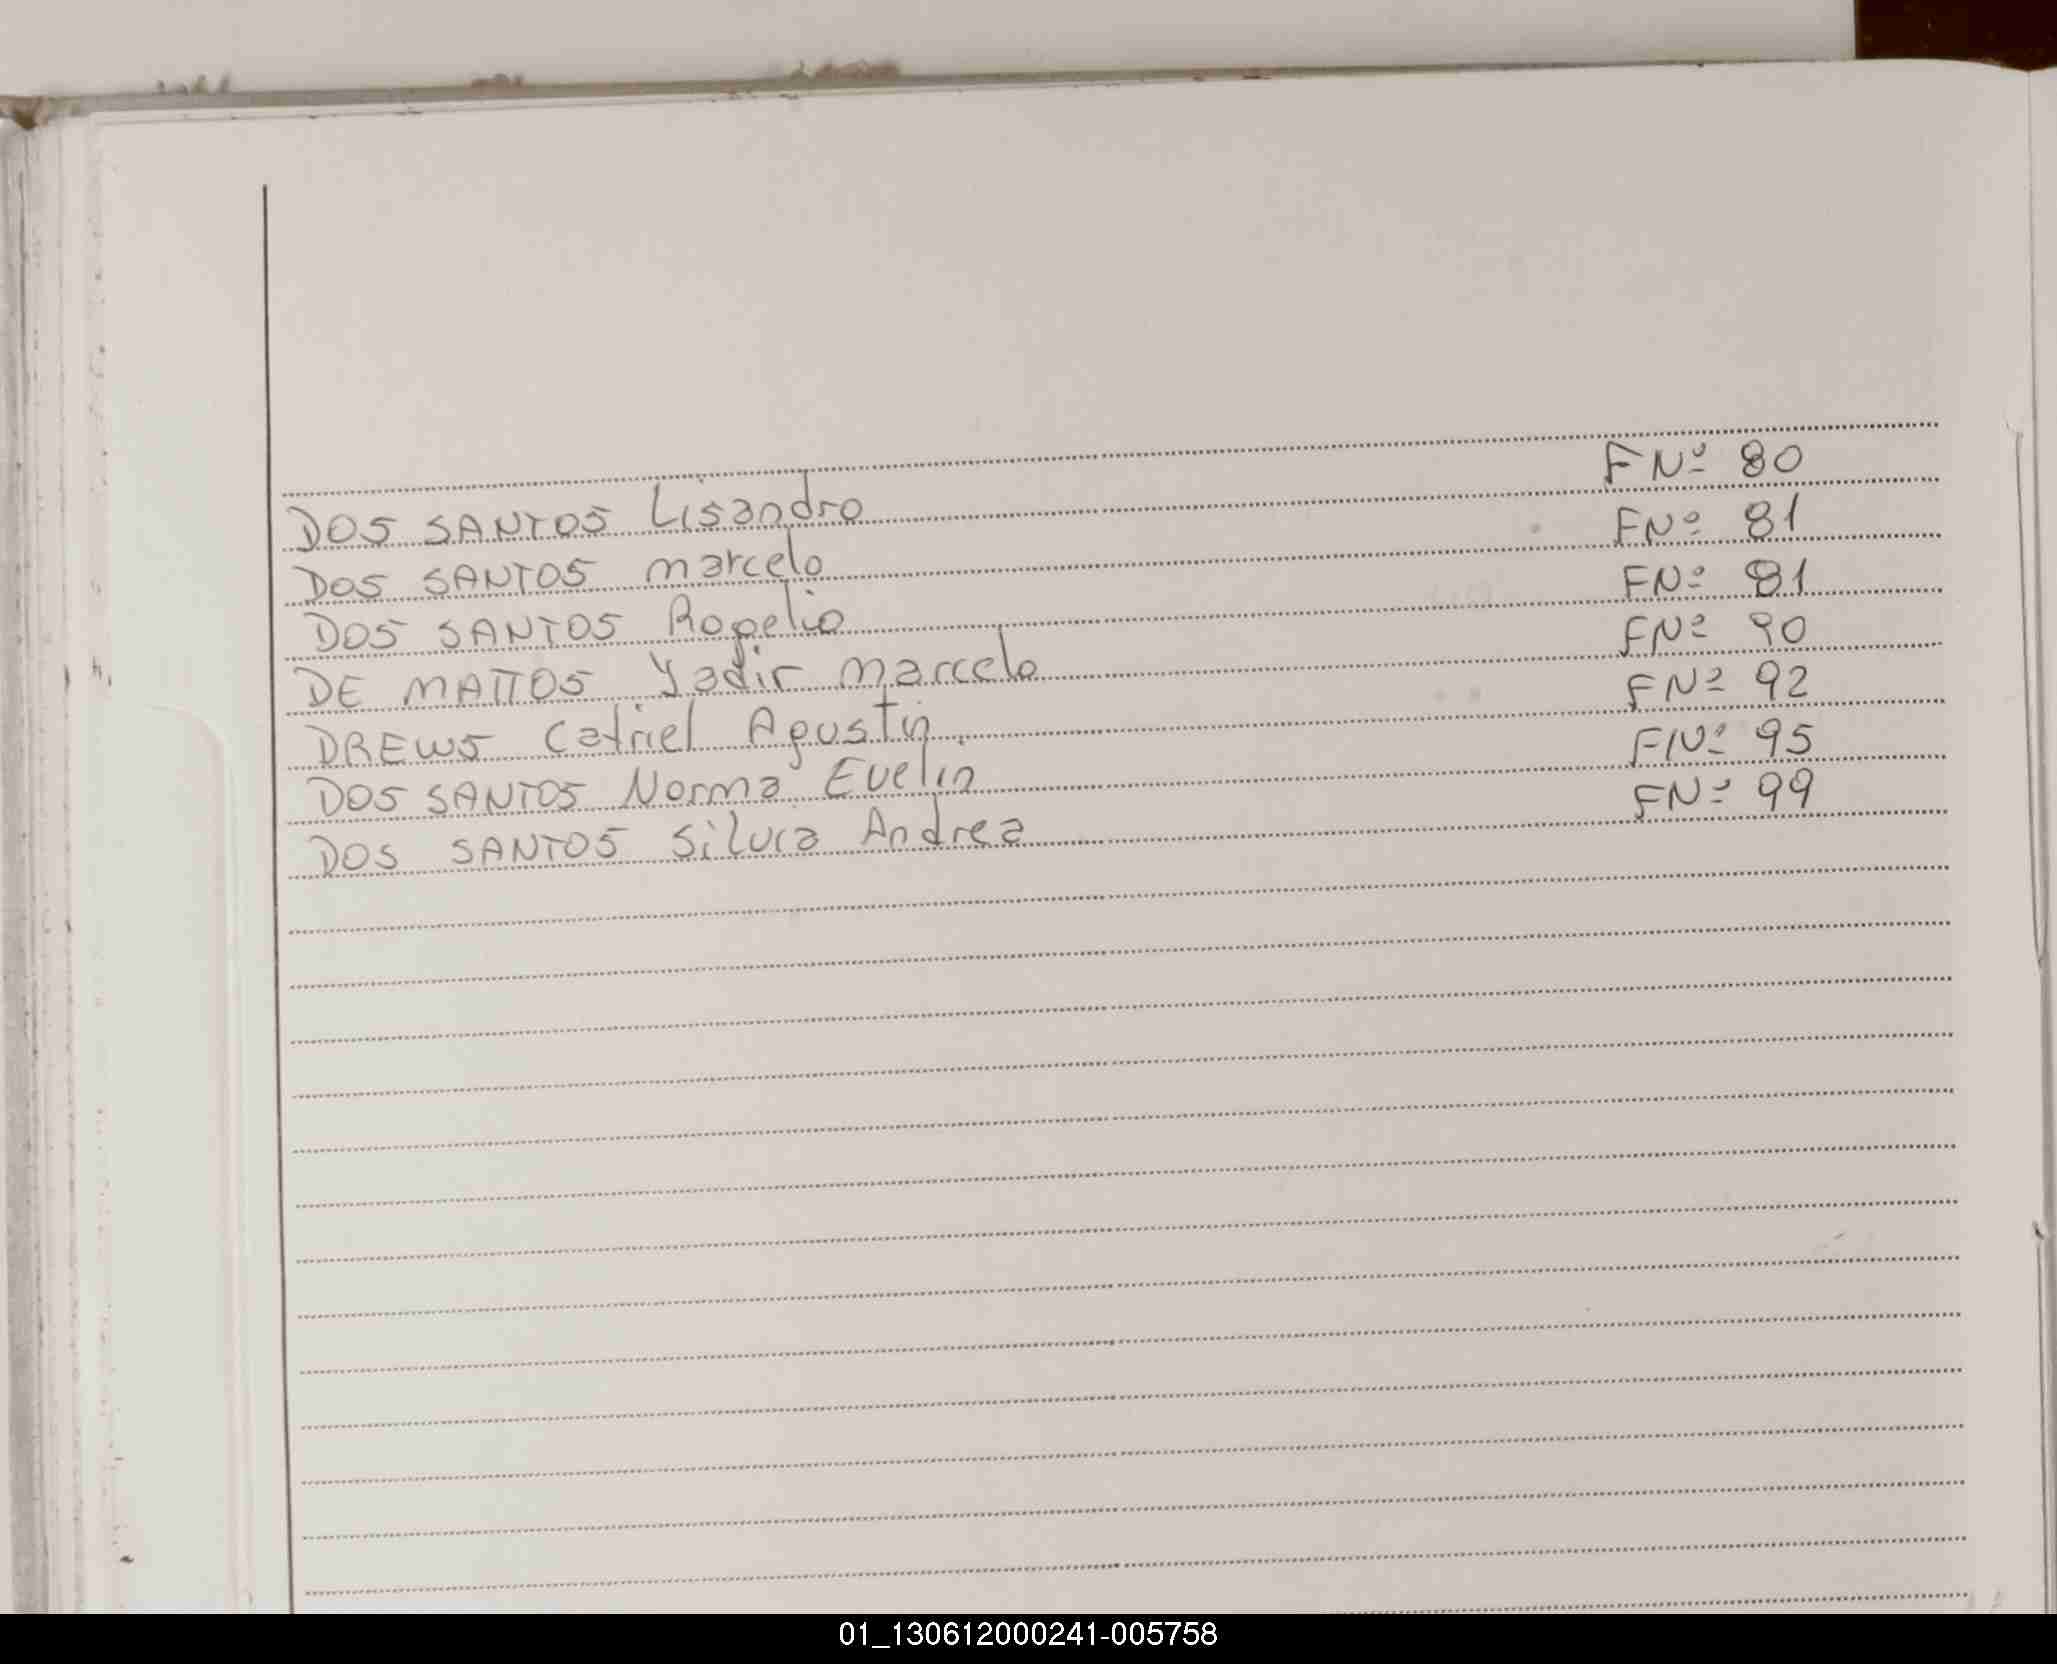 DOS SANTOS Lisandro FNº 80
DOS SANTOS marcelo FNº 81
DOS SANTOS Rogelio FNº 81
DE MATTOS Yadir marcelo FNº 90
DREWS Catriel Agustin. FNº 92
DOS SANTOS Norma Evelin FNº 95
DOS SANTOS Silvia Andrea FNº 99
01_130612000241-005758